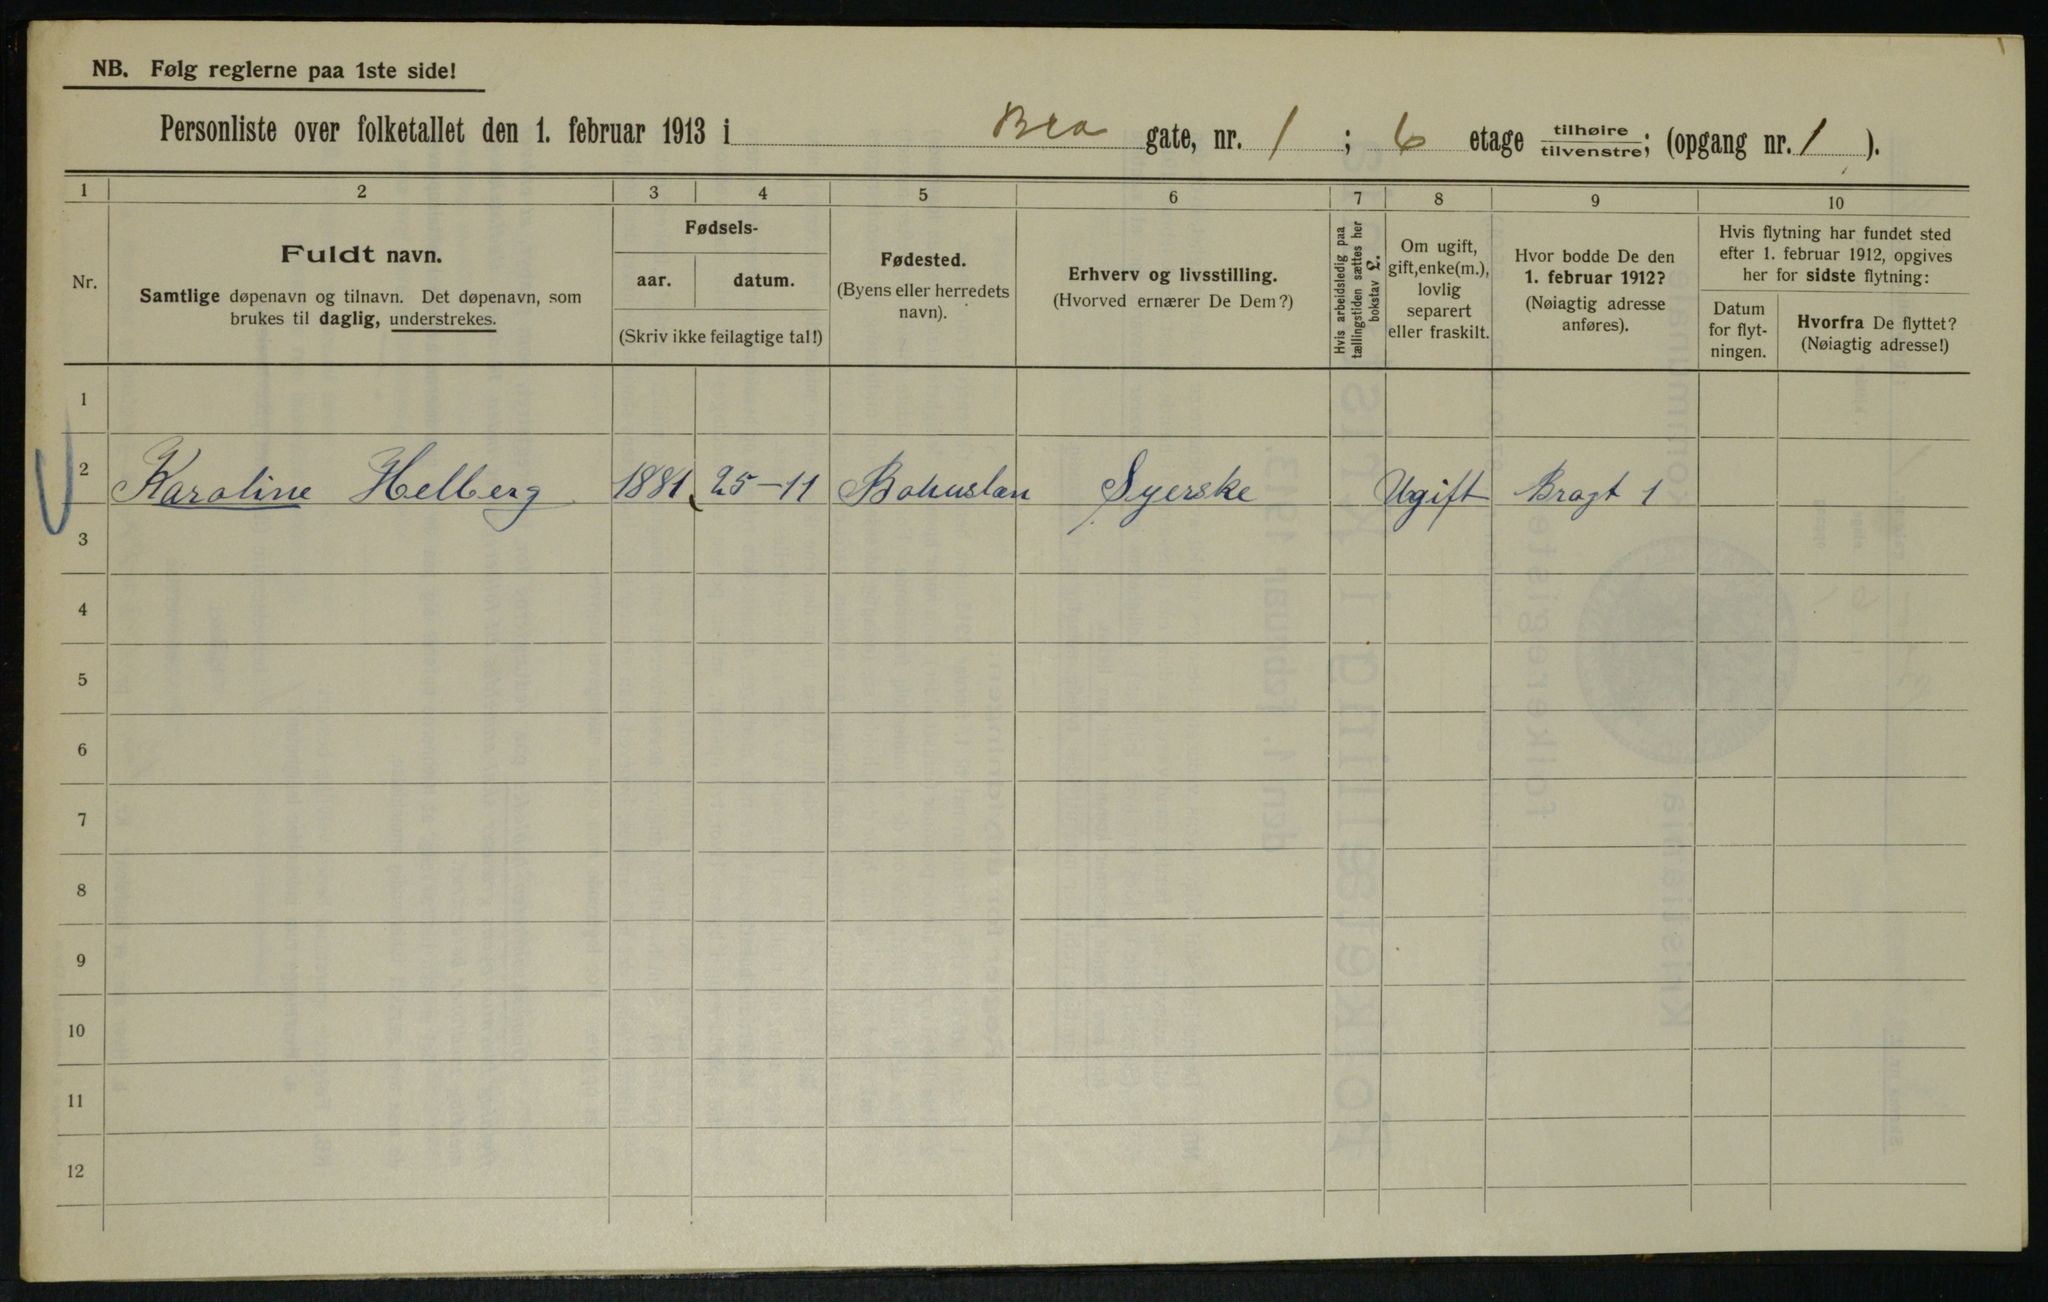 NB. Følg reglerne paa 1ste side!
Personliste over folketallet den 1. februar 1913 i Bra gate, nr. 1 ; 6 etage tilhøire / tilvenstre; (opgang nr. 1 ).
1 2 3 4 5 6 7 8 9 10
Nr.
Fuldt navn.
Samtlige døpenavn og tilnavn. Det døpenavn, som
brukes til daglig, understrekes.
Fødsels-
aar. datum.
(Skriv ikke feilagtige tal!)
Fødested.
(Byens eller herredets
navn).
Erhverv og livsstilling.
(Hvorved ernærer De Dem?)
Hvis arbeidsledig paa
tællingstiden sættes her
bokstav L.
Om ugift,
gift, enke(m.),
lovlig
separert
eller fraskilt.
Hvor bodde De den
1. februar 1912?
(Nøiagtig adresse
anføres).
Hvis flytning har fundet sted
efter 1. februar 1912, opgives
her for sidste flytning:
Datum
for flyt-
ningen.
Hvorfra De flyttet?
(Nøiagtig adresse!)
1
2 Karoline Helberg 1881 25-11 Bohuslen Syerske Ugift Bragt 1
3
4
5
6
7
8
9
10
11
12